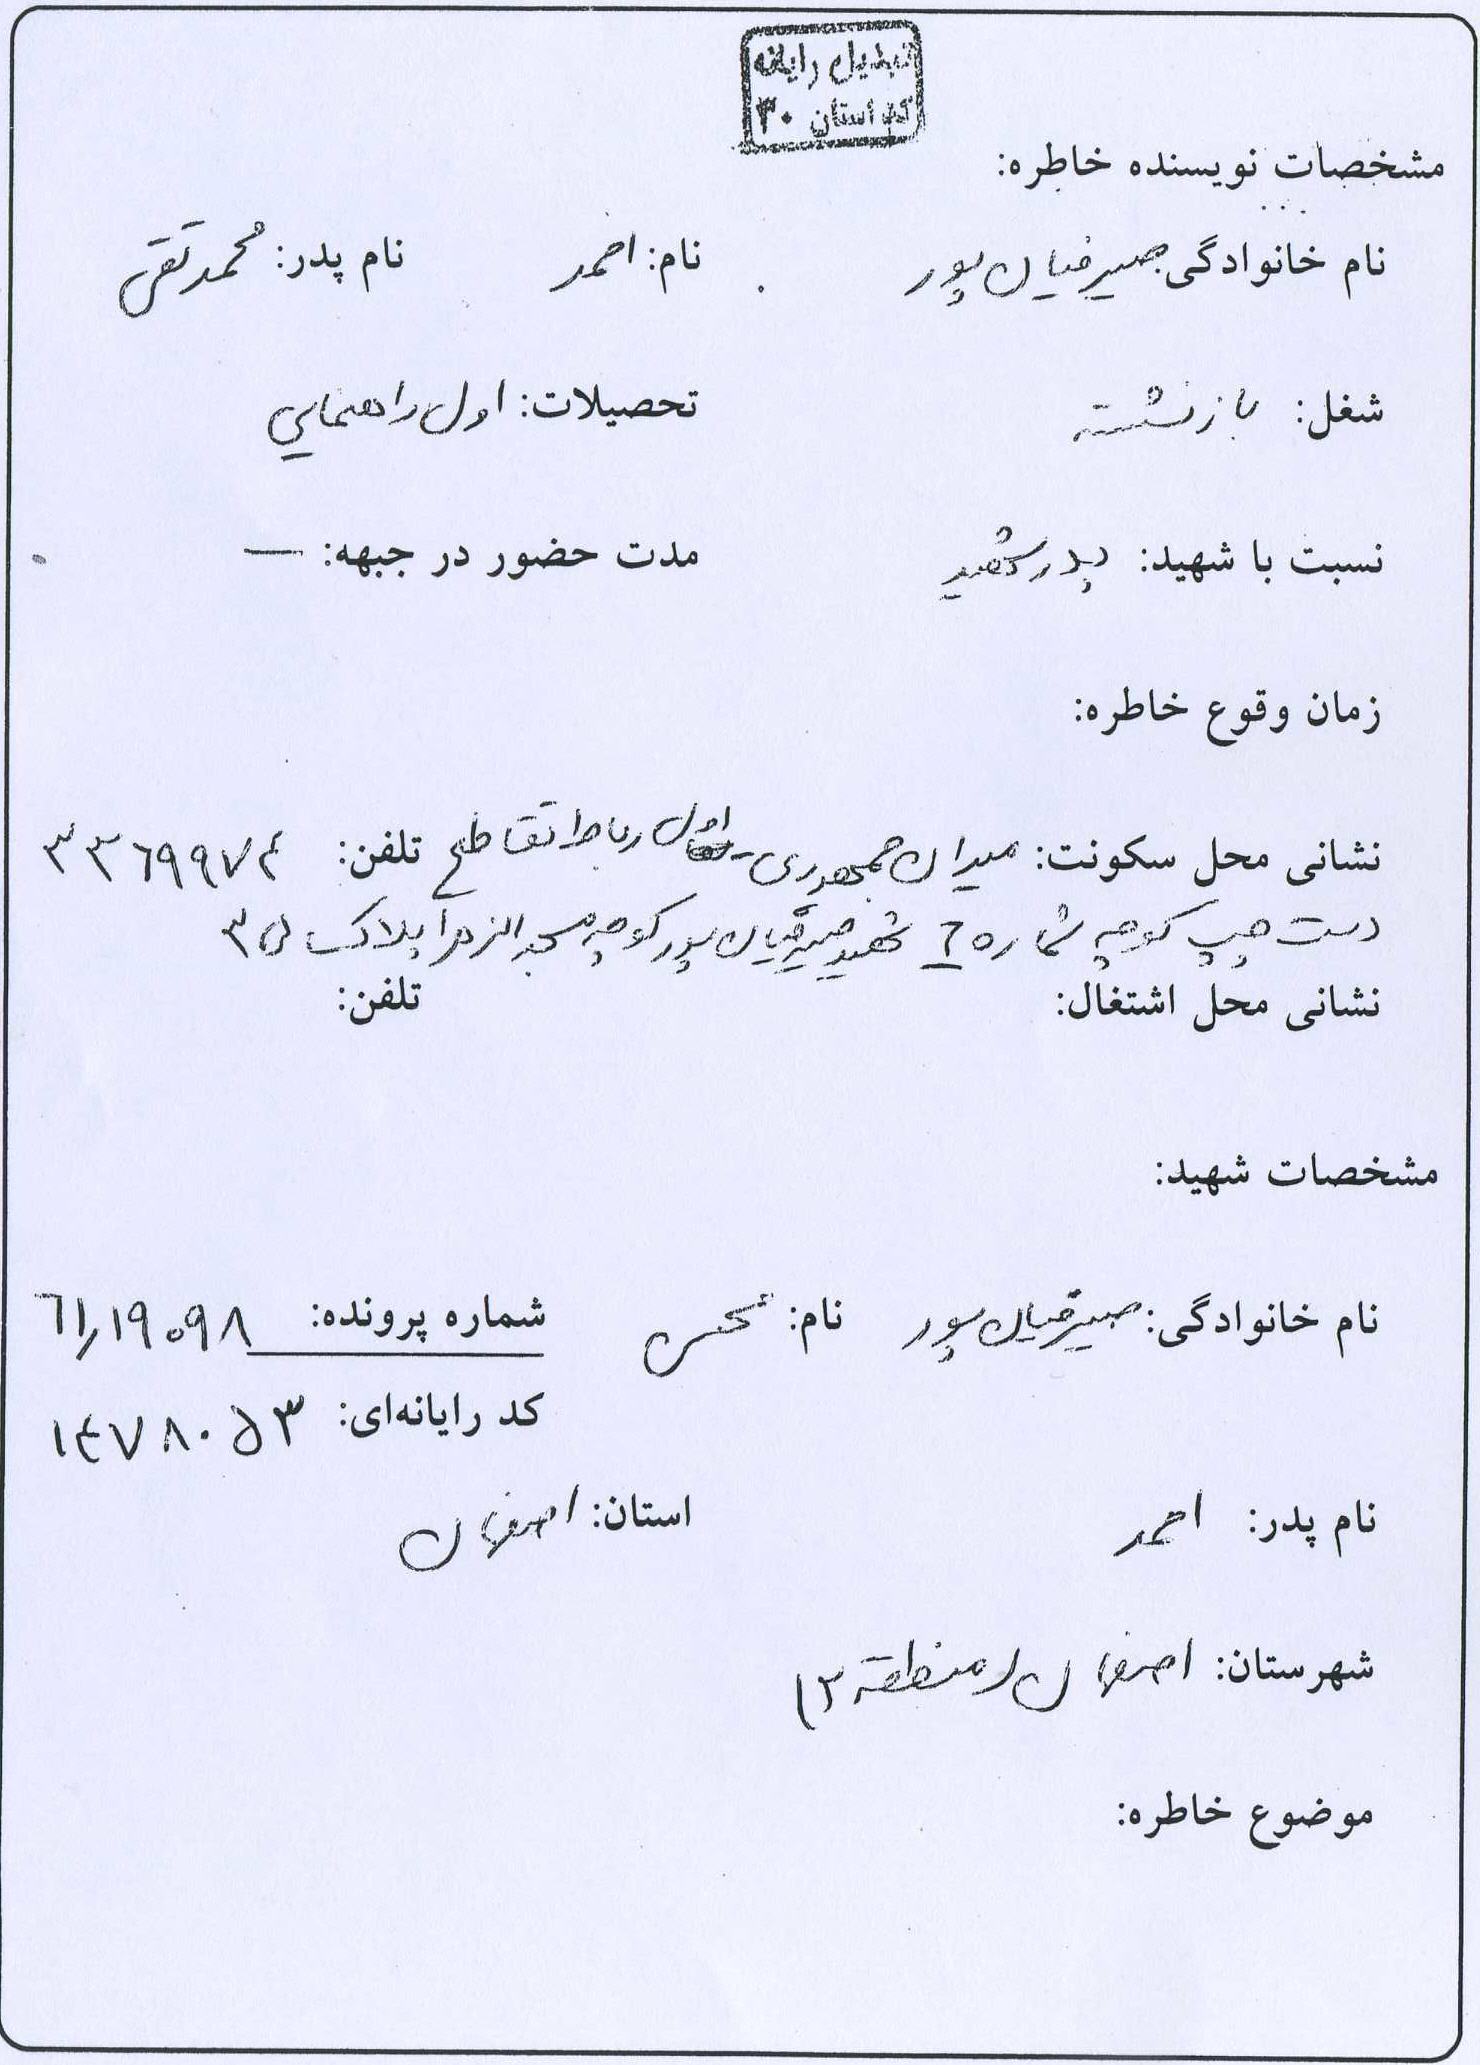 تبدیل رایانه
کد استان ۳۰
مشخصات نویسنده خاطره:
نام خانوادگی: صیرفیان پور نام: احمد نام پدر: محمد تقی
شغل: بازنشسته تحصیلات: اول راهنمایی
نسبت با شهید: پدر شهید مدت حضور در جبهه: —
زمان وقوع خاطره:
نشانی محل سکونت: میدان جمهوری - اول رباط تقاطع تلفن: ۳۳۶۹۹۷۴
دست چپ کوچه شماره ۶ شهید صیرفیان پور کوچه مسجد الزهرا پلاک ۳۵
نشانی محل اشتغال: تلفن:
مشخصات شهید:
نام خانوادگی: صیرفیان پور نام: محسن شماره پرونده: ۶۱/۱۹۰۹۸
کد رایانه‌ای: ۱۴۷۸۰۵۳
نام پدر: احمد استان: اصفهان
شهرستان: اصفهان (منطقه ۳)
موضوع خاطره: